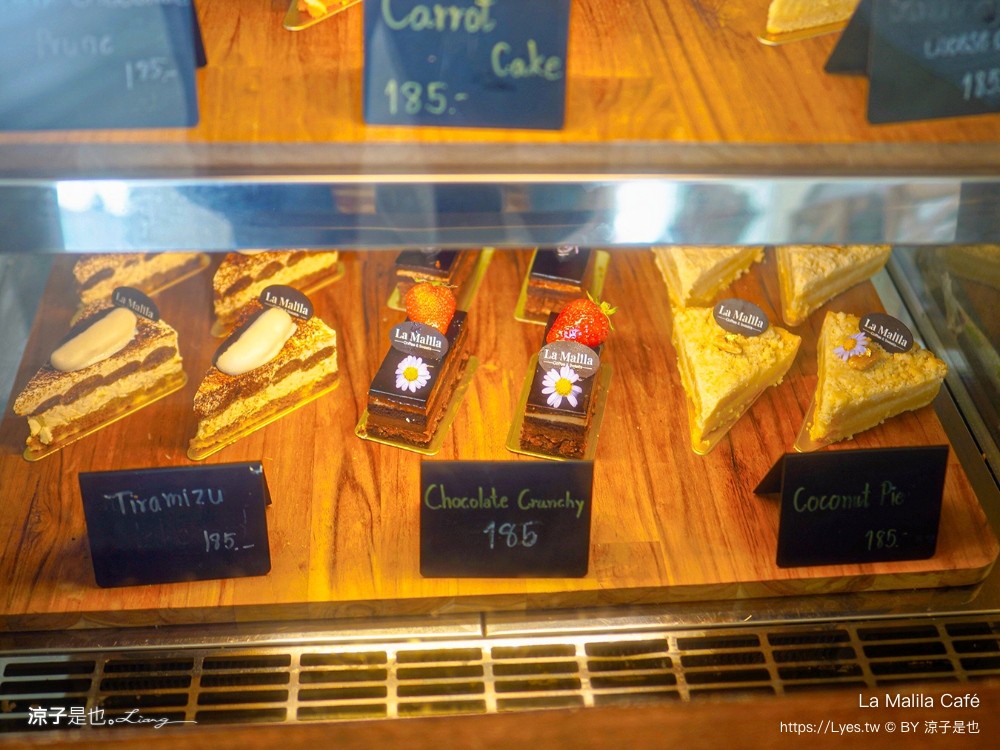 Prune
195.-
Carrot
Cake
185.-
185
La Malila
La Malila
La Malila
La Malila
La Malila
La Malila
Tiramizu
185.-
Chocolate Crunchy
185
Coconut Pie
185.-
涼子是也。Liang
La Malila Café
https://Lyes.tw © BY 涼子是也